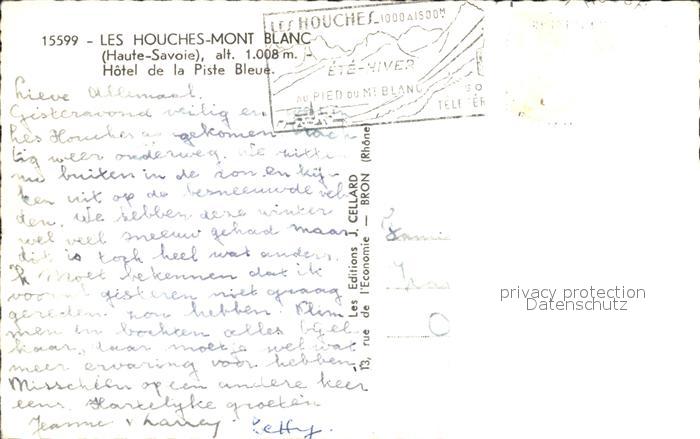 LES HOUCHES 1000 A 1500 M
ÉTÉ-HIVER
AU PIED DU MT BLANC
15599 - LES HOUCHES-MONT BLANC
(Haute-Savoie), alt. 1.008 m. -
Hôtel de la Piste Bleue.
Lieve Allemaal.
Gisteravond veilig en
Les Houches gekomen
tig weer onderweg. We zitten
nu buiten in de zon en kij-
ken uit op de besneeuwde vel
den. We hebben deze winter
wel veel sneeuw gehad maar
dit is toch heel wat anders.
'k Moet bekennen dat ik
gisteren niet graag
gereden zou hebben. Klim
men en bochten alles bij el
kaar, daar moet je wel wat
meer ervaring voor hebben.
Misschien op een andere keer
eens. Hartelijke groeten
Jeanne
Les Editions J. CELLARD
13, rue de l'Economie — BRON (Rhône)
Fami
privacy protection
Datenschutz